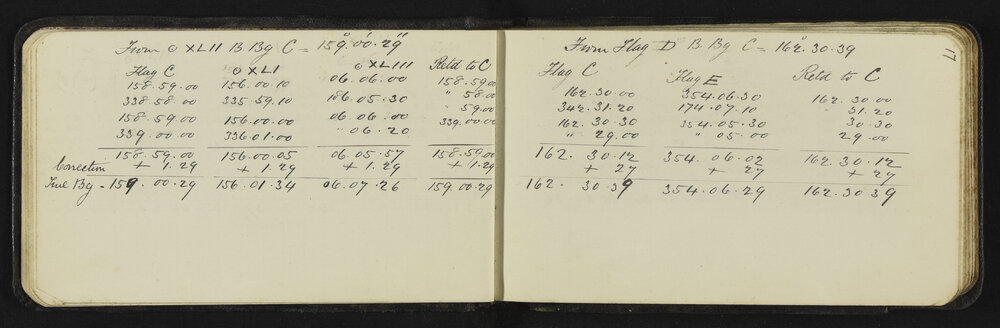 From ⊙ XLII B Bg C = 159°.00'.29"
Flag C ⊙ XLI ⊙ XLIII Retd to C
158.59.00 156.00.10 06.06.00 158.59.00
338.58.00 335.59.10 186.05.30 " 58.00
158.59.00 156.00.00 06.06.00 " 59.00
339.00.00 336.01.00 " 06.20 339.00.00
158.59.00 156.00.05 06.05.57 158.59.00
Correction + 1.29 + 1.29 + 1.29 + 1.29
True Bg - 159.00.29 156.01.34 06.07.26 159.00.29
17
From Flag D B Bg C = 162°.30.39
Flag C Flag E Retd to C
162.30.00 354.06.30 162.30.00
342.31.20 174.07.10 " 31.20
162.30.30 354.05.30 30.30
" 29.00 " 05.00 29.00
162.30.12 354.06.02 162.30.12
+ 27 + 27 + 27
162.30.39 354.06.29 162.30.39